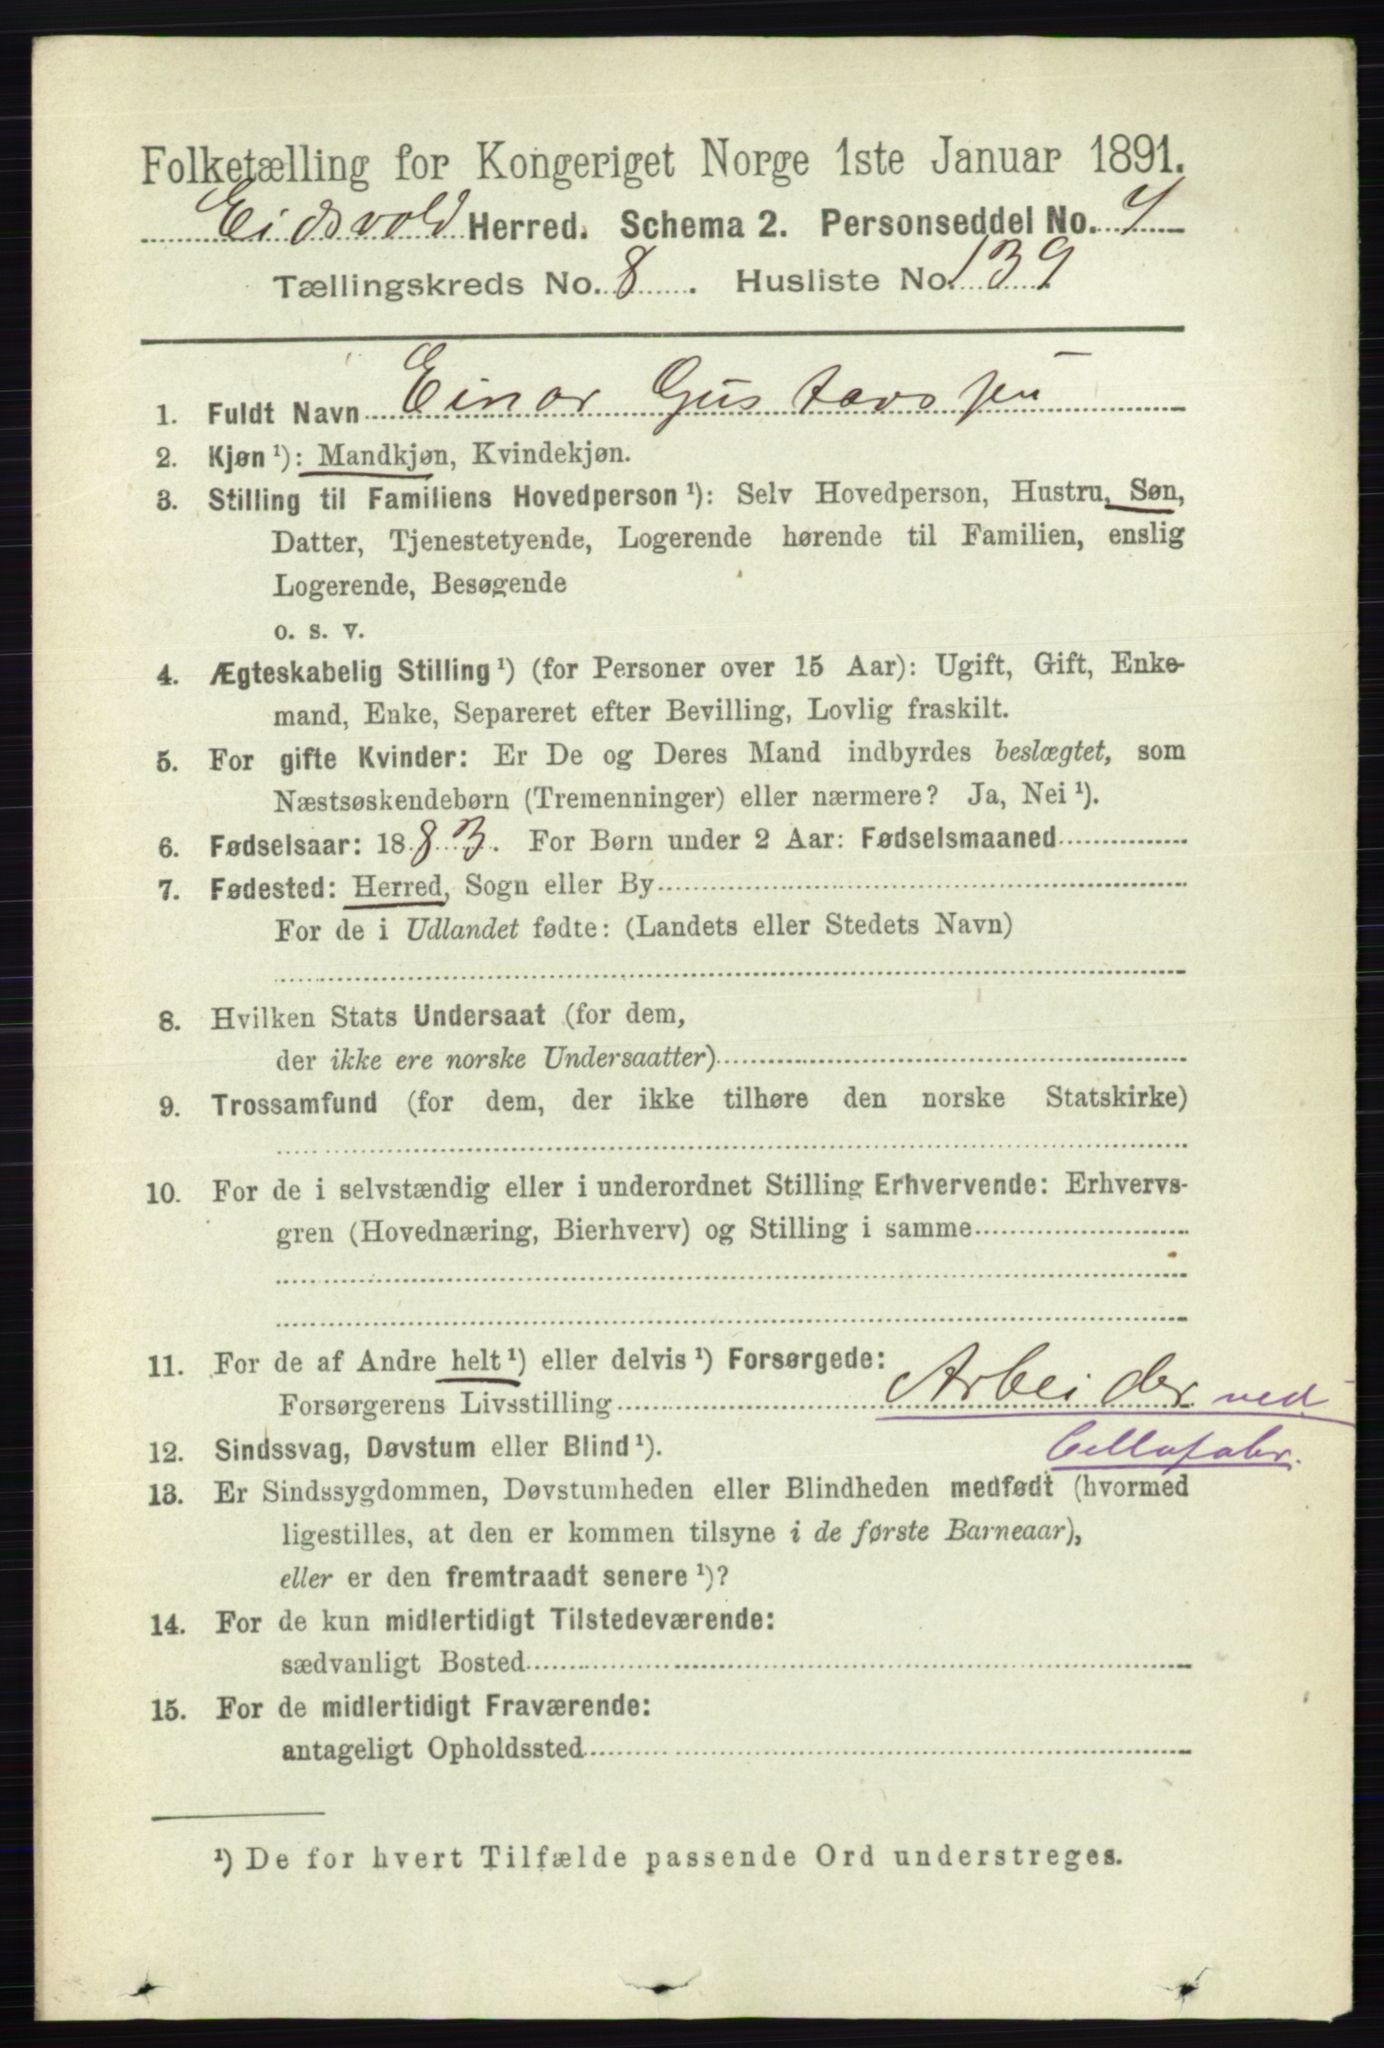 Folketælling for Kongeriget Norge 1ste Januar 1891.
Eidsvold Herred. Schema 2. Personseddel No. 4
Tællingskreds No. 8. Husliste No. 139
1. Fuldt Navn Einar Gustavssen
2. Kjøn ¹): Mandkjøn, Kvindekjøn.
3. Stilling til Familiens Hovedperson ¹): Selv Hovedperson, Hustru, Søn,
Datter, Tjenestetyende, Logerende hørende til Familien, enslig
Logerende, Besøgende
o. s. v.
4. Ægteskabelig Stilling ¹) (for Personer over 15 Aar): Ugift, Gift, Enke-
mand, Enke, Separeret efter Bevilling, Lovlig fraskilt.
5. For gifte Kvinder: Er De og Deres Mand indbyrdes beslægtet, som
Næstsøskendebørn (Tremenninger) eller nærmere? Ja, Nei ¹).
6. Fødselsaar: 1883. For Børn under 2 Aar: Fødselsmaaned
7. Fødested: Herred, Sogn eller By
For de i Udlandet fødte: (Landets eller Stedets Navn)
8. Hvilken Stats Undersaat (for dem,
der ikke ere norske Undersaatter)
9. Trossamfund (for dem, der ikke tilhøre den norske Statskirke)
10. For de i selvstændig eller i underordnet Stilling Erhvervende: Erhvervs-
gren (Hovednæring, Bierhverv) og Stilling i samme
11. For de af Andre helt ¹) eller delvis ¹) Forsørgede:
Forsørgerens Livsstilling Arbeider ved
12. Sindssvag, Døvstum eller Blind ¹). Cellufabr.
13. Er Sindssygdommen, Døvstumheden eller Blindheden medfødt (hvormed
ligestilles, at den er kommen tilsyne i de første Barneaar),
eller er den fremtraadt senere ¹)?
14. For de kun midlertidigt Tilstedeværende:
sædvanligt Bosted
15. For de midlertidigt Fraværende:
antageligt Opholdssted
¹) De for hvert Tilfælde passende Ord understreges.